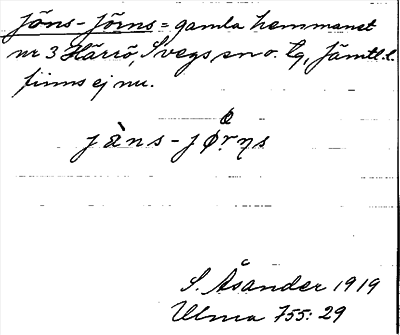 Jöns-Jörns = gamla hemmanet
nr 3 Härrö, Svegs sn o. tg, Jämtl. l.
finns ej nu.
jàns-jørṇs
S. Åsander 1919
Ulma 755:29